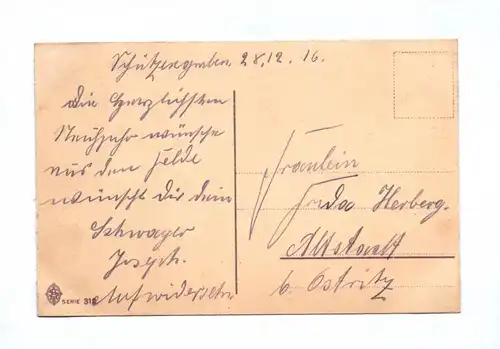 Schützengraben 28.12.16.
Die Herzlichsten
Neuhjahr wünsche
aus dem Felde
wünscht Dir dein
Schwager
Joseph.
Aufwiedersehn
Fräulein
Frida Herberg.
Altstadt
b. Ostritz
SERIE 318